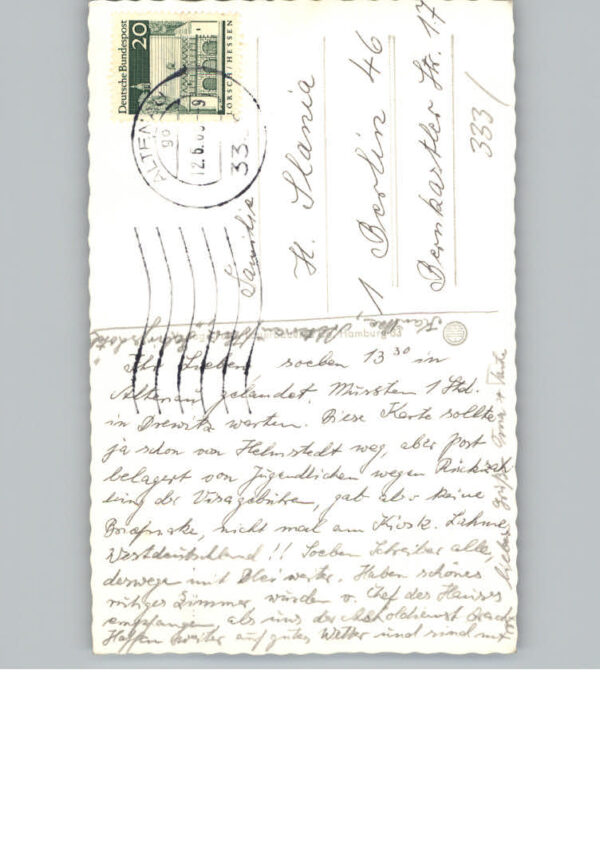 Deutsche Bundespost
20
LORSCH/HESSEN
ALTENAU
12.6.
9
33
333/
Familie
H. Slania
1 Berlin 46
Bernkastler Str. 17
Hamburg 63
Ihr Lieben, soeben 13 30 in
Altenau gelandet. Mussten 1 Std.
in Drewitz warten. Diese Karte sollte
ja schon von Helmstedt weg, aber Post
belagert von Jugendlichen wegen Rückzah
lung der Visagebühren, gab also keine
Briefmarke, nicht mal am Kiosk. Lahme
Westdeutschland!! Soeben Schreiber alle,
deswegen mit Blei weiter. Haben schönes
ruhiges Zimmer, wurden v. Chef des Hauses
empfangen, als uns der Abholdienst brach
Hoffen weiter auf gutes Wetter und sind mit
lieben Grüßen Oma +